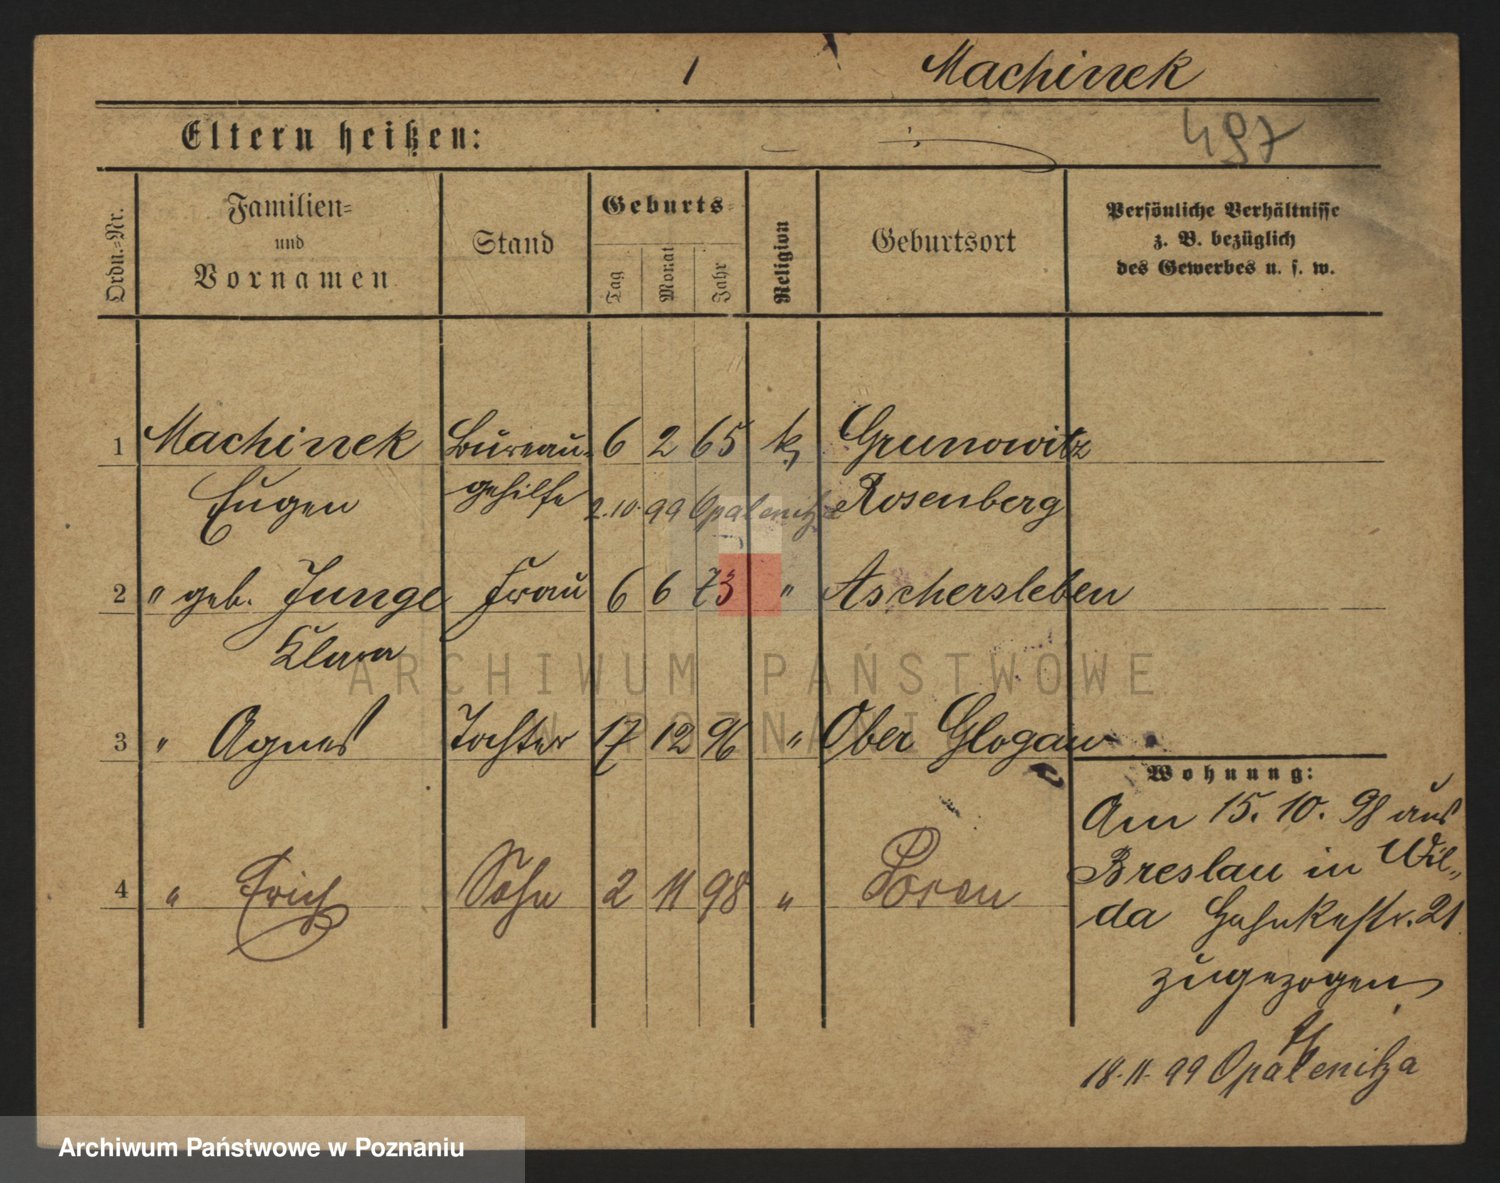 1 Machinek
497
Eltern heißen:
Ordn.=Nr.
Familien=
und
Vornamen
Stand
Geburts=
Tag
Monat
Jahr
Religion
Geburtsort
Persönliche Verhältnisse
z. B. bezüglich
des Gewerbes u. s. w.
1 Machinek Bureau- 6 2 65 k, Grunowitz
Eugen gehilfe 2.10.99 Opalenitza Rosenberg
2 " geb. Junge Frau 6 6 73 " Aschersleben
Klara
3 " Agnes Tochter 17 12 96 " Ober Glogau
4 " Erich Sohn 2 11 98 " Posen
Wohnung:
Am 15.10.98 aus
Breslau in Wil-
da Hahnkestr. 21
zugezogen
18.11.99 Opalenitza
ARCHIWUM PAŃSTWOWE
W POZNANIU
Archiwum Państwowe w Poznaniu